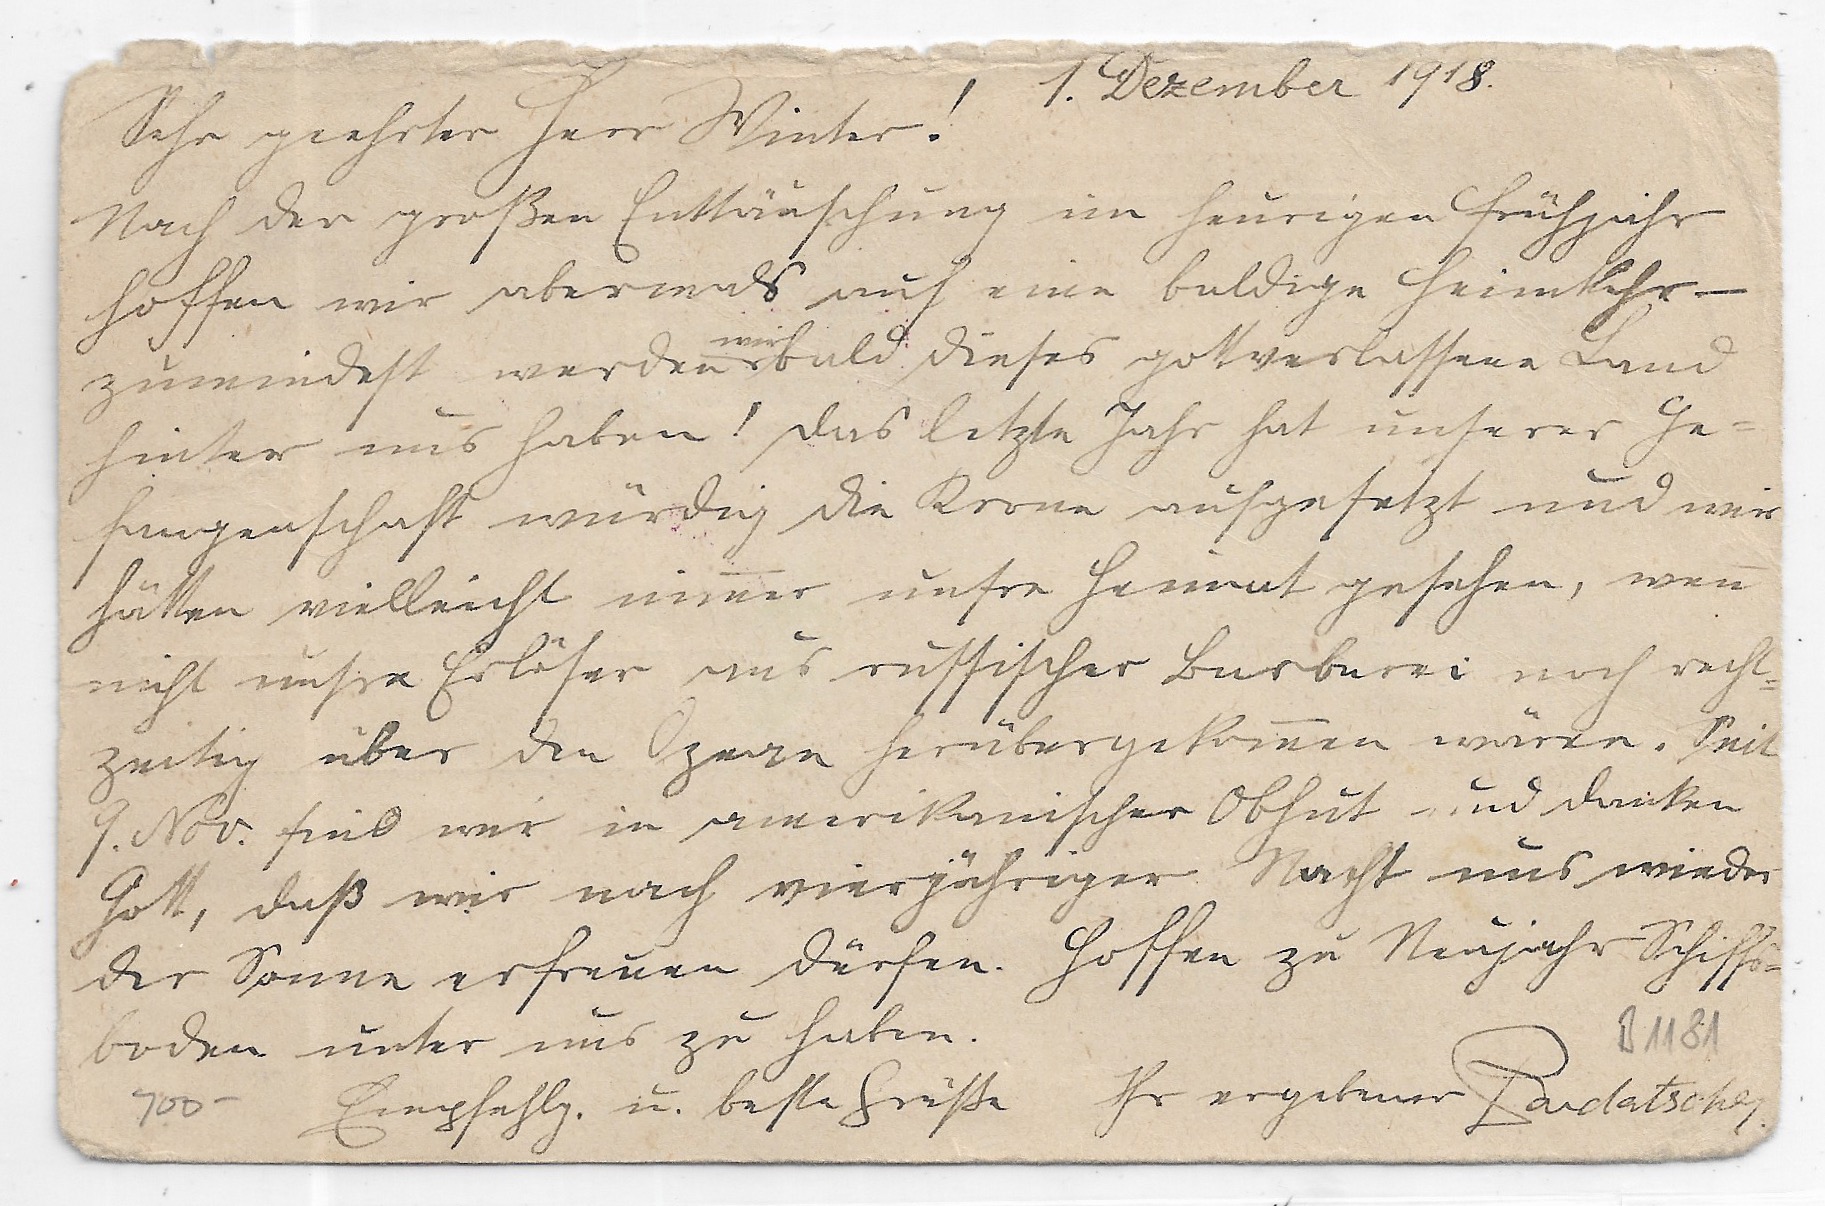 1. Dezember 1918.
Sehr geehrter Herr Winter!
Nach der großen Enttäuschung im heurigen Frühjahr
hoffen wir abermals auf eine baldige Heimkehr –
zumindest werden wir bald dieses gottverlassene Land
hinter uns haben! Das letzte Jahr hat unserer Ge=
fangenschaft würdig die Krone aufgesetzt und wir
hätten vielleicht nim̅er unsre Heimat gesehen, wen̅
nicht unsre Erlöser aus russischer Barbarei noch recht=
zeitig über den Ozean herübergekom̅en wären. Seit
9. Nov. sind wir in amerikanischer Obhut und danken
Gott, daß wir nach vierjähriger Nacht uns wieder
der Sonne erfreuen dürfen. Hoffen zu Neujahr Schiffs=
boden unter uns zu haben.
B 1181
700– Empfehlg. u. beste Grüße Ihr ergebener